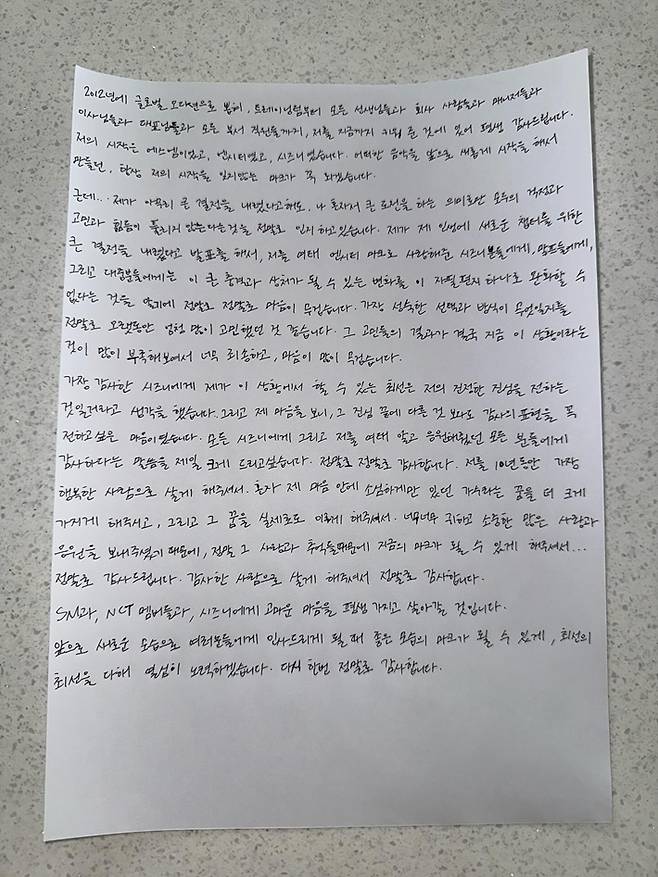 2012년에 글로벌 오디션으로 통해, 트레이닝팀부터 모든 선생님들과 회사 사람들과 매니저들과
이사님들과 대표님들과 모든 부서 직원들까지, 저를 지금까지 키워 준 것에 있어 평생 감사드립니다.
저의 시작은 에스엠이었고, 엔시티였고, 시즈니였습니다. 어떠한 음악을 앞으로 새롭게 시작을 해서
만들던, 항상 저의 시작을 잊지않는 마크가 꼭 되겠습니다.
근데... 제가 아무리 큰 결정을 내렸다고해도, 나 혼자서 큰 도전을 하는 의미로만 모두의 걱정과
고민과 힘듦이 풀리지 않는다는것을 정말로 인지하고있습니다. 제가 제 인생에 새로운 챕터를 위한
큰 결정을 내렸다고 발표를 해서, 저를 여태 엔시티 마크로 사랑해준 시즈니분들에게, 팬분들에게,
그리고 대중분들에게는 이 큰 충격과 상처가 될 수 있는 변화를 이 자필편지 하나로 완화할 수
없다는 것을 알기에 정말로 정말로 마음이 무겁습니다. 가장 성숙한 선택과 방식이 무엇일지를
정말로 오랫동안 엄청 많이 고민했던 것 같습니다. 그 고민들의 결과가 결국 지금 이 상황이라는
것이 많이 부족해보여서 너무 죄송하고, 마음이 많이 무겁습니다.
가장 감사한 시즈니에게 제가 이 상황에서 할 수 있는 최선은 저의 진정한 진심을 전하는
것일거라고 생각을 했습니다. 그리고 제 마음을 보니, 그 진심 끝에 다른 것 보다도 감사의 표현을 꼭
전하고싶은 마음이였습니다. 모든 시즈니에게 그리고 저를 여태 알고 응원해줬던 모든 분들에게
감사하다는 말씀을 제일 크게 드리고싶습니다. 정말로 정말로 감사합니다. 저를 10년동안 가장
행복한 사람으로 살게 해주셔서. 혼자 제 마음 안에 소심하게만 있던 가수라는 꿈을 더 크게
가지게 해주시고, 그리고 그 꿈을 실제로도 이루게 해주셔서. 너무너무 귀하고 소중한 많은 사랑과
응원을 보내주셨기 때문에, 정말 그 사랑과 추억들때문에 지금의 마크가 될 수 있게 해주셔서...
정말로 감사드립니다. 감사한 사람으로 살게 해주셔서 정말로 감사합니다.
SM과, NCT 멤버들과, 시즈니에게 고마운 마음을 평생 가지고 살아갈 것입니다.
앞으로 새로운 모습으로 여러분들에게 인사드리게 될 때 좋은 모습의 마크가 될 수 있게, 최선의
최선을 다해 열심히 노력하겠습니다. 다시 한번 정말로 감사합니다.